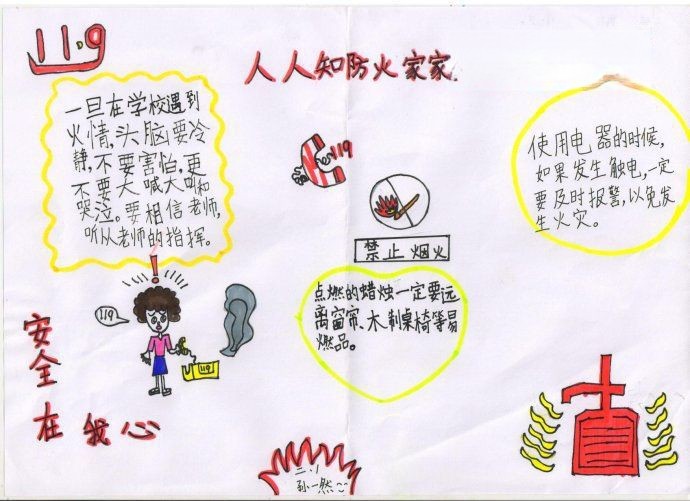 119
人人知防火家家
一旦在学校遇到
火情,头脑要冷
静,不要害怕,更
不要大喊大叫和
哭泣。要相信老师,
听从老师的指挥。
119
使用电器的时候,
如果发生触电,一定
要及时报警,以免发
生火灾。
禁止烟火
点燃的蜡烛一定要远
离窗帘、木制桌椅等易
燃品。
!
119
119
安全在我心
二.1
孙一然